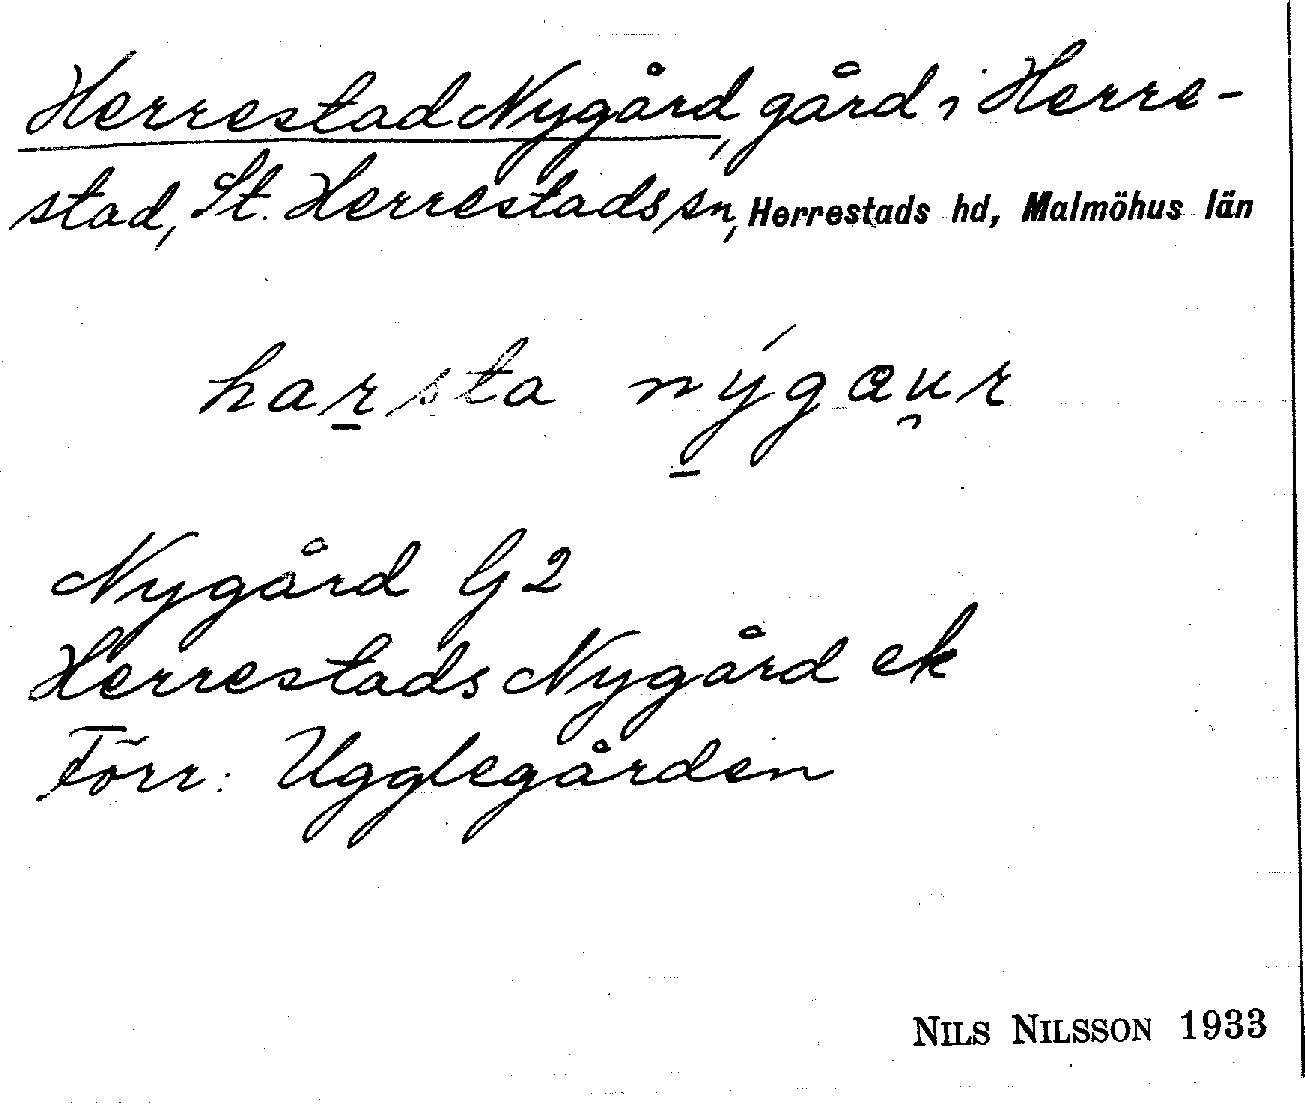 Herrestad Nygård, gård i Herre-
stad, St. Herrestads sn, Herrestads hd, Malmöhus län
ha̱rsta ńy̱gæu̯r
Nygård G2
Herrestads Nygård ek
Förr: Ugglegården
NILS NILSSON 1933